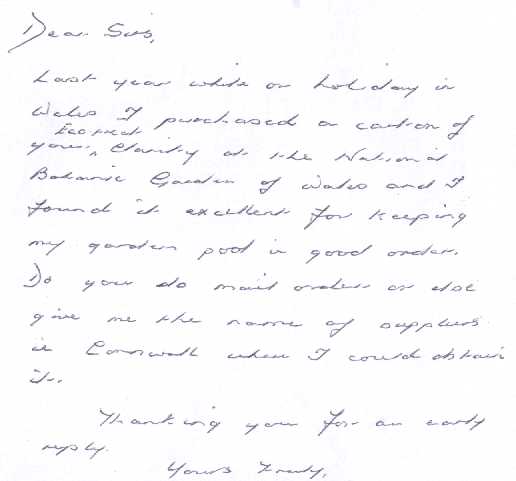 Dear Sirs,
Last year while on holiday in
Wales I purchased a carton of
Ecotreat
your ^ Clarity at the National
Botanic Garden of Wales and I
found it excellent for keeping
my garden pool in good order.
Do you do mail orders or else
give me the name of suppliers
in Cornwall where I could obtain
it.
Thanking you for an early
reply.
Yours truly,